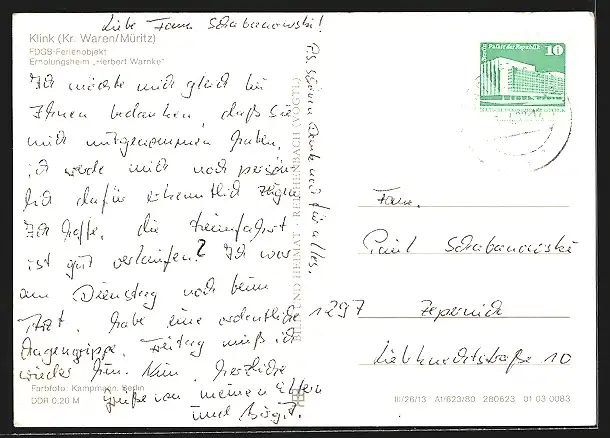 Liebe Fam. Schabanowski!
Klink (Kr. Waren/Müritz)
FDGB-Ferienobjekt
Erholungsheim „Herbert Warnke"
Ich möchte mich gleich bei
Ihnen bedanken, daß Sie
mich mitgenommen haben,
ich werde mich noch persön-
lich dafür erkenntlich zeigen
Ich hoffe, die Heimfahrt
ist gut verlaufen? Ich war
am Dienstag noch beim
Arzt. Habe eine ordentliche
Magengrippe. Freitag muß ich
wieder hin. Nun, herzliche
Grüße von meinen Eltern
und Birgit.
PS. schönen Dank noch für alles.
Farbfoto: Kampmann, Berlin
DDR 0,20 M
BILD UND HEIMAT · REICHENBACH (VOGTL)
Palast der Republik
10
Fam.
Paul Schabanowski
1297 Zepernick
Liebknechtstraße 10
III/26/13 A1/623/80 280623 01 03 0083